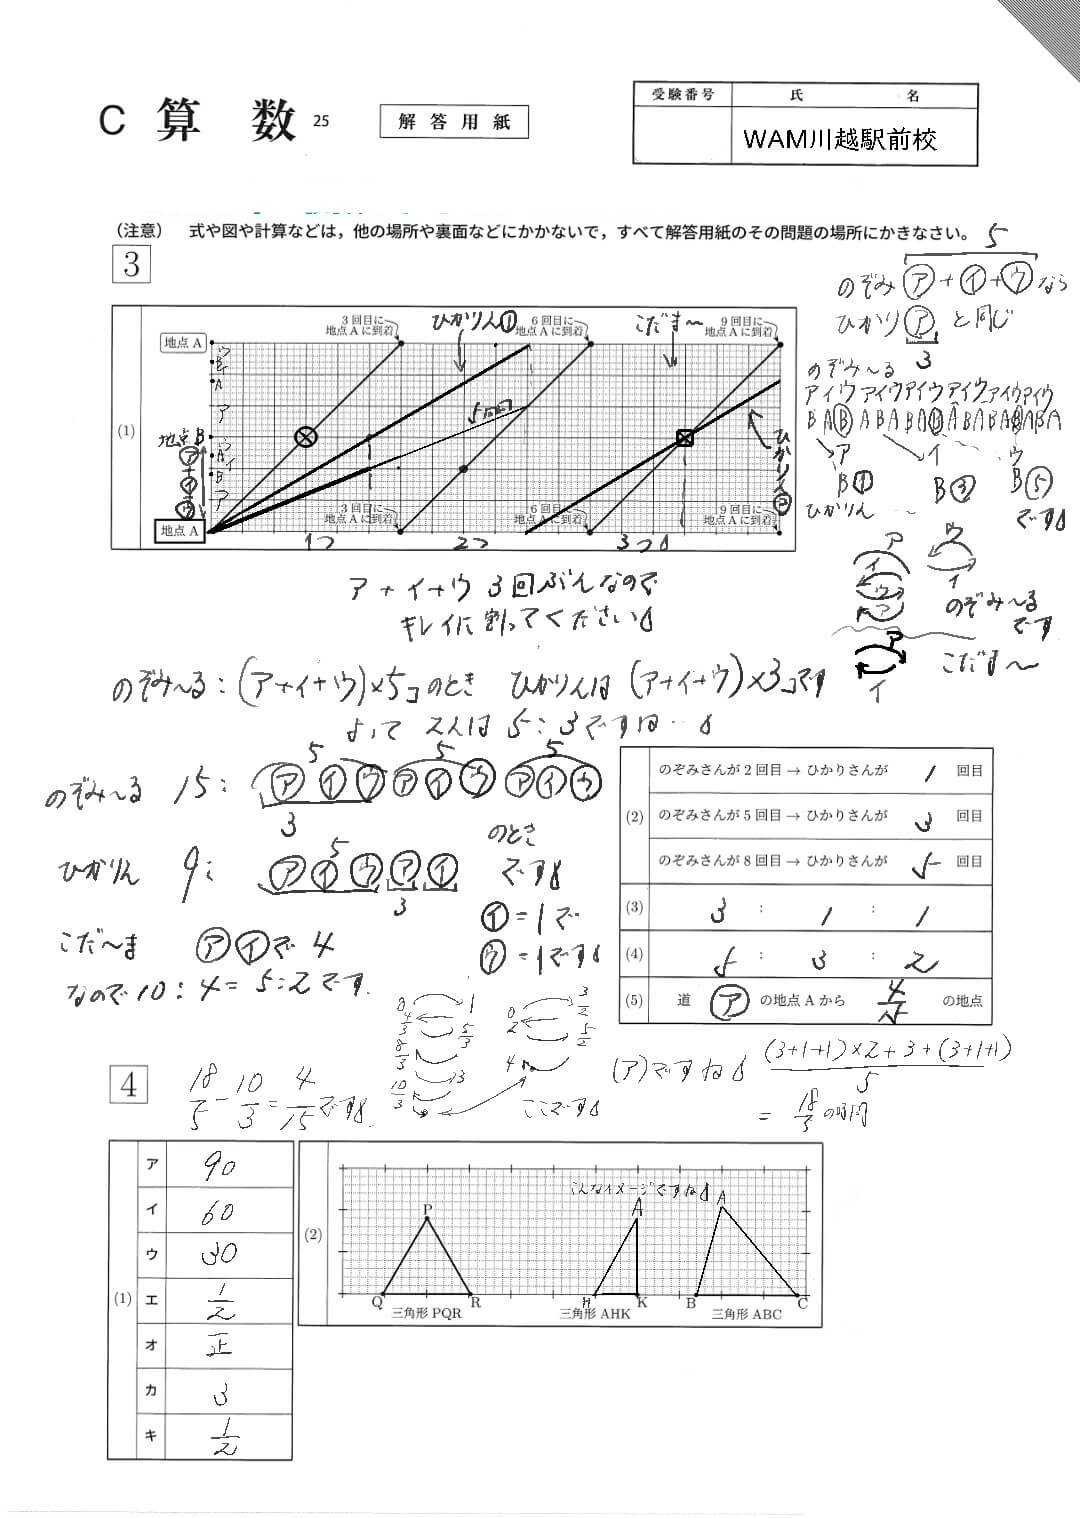 C 算数 25
解答用紙
受験番号 氏 名
WAM川越駅前校
(注意) 式や図や計算などは，他の場所や裏面などにかかないで，すべて解答用紙のその問題の場所にかきなさい。
3
5
のぞみ ア+イ+ウ なら
ひかり ア と同じ
3
のぞみ〜る
アイウ アイウ アイウ アイウ アイウ アイウ
ア イ ウ
B① B③ B⑤
ひかりん です
(1)
3回目に地点Aに到着
ひかりん①
6回目に地点Aに到着
こだま〜
9回目に地点Aに到着
地点A
地点B
ア+イ+ウ
ひかりん②
地点A
3回目に地点Aに到着
6回目に地点Aに到着
9回目に地点Aに到着
1つ 2つ 3つ
ア イ ウ ア
ウ イ
のぞみ〜るです
ア イ
こだま〜
ア+イ+ウ 3回ぶんなので
キレイに割ってください
のぞみ〜る:(ア+イ+ウ)×5コのとき ひかりんは(ア+イ+ウ)×3コです
よって 5:3ですね
のぞみ〜る 15: アイウアイウアイウ
5 5 5
3
のとき
ひかりん 9: アイウアイ です
5
3
こだ〜ま アイで 4
イ=1で
ウ=1です
なので10:4=5:2です.
(2)
のぞみさんが2回目→ひかりさんが 1 回目
のぞみさんが5回目→ひかりさんが 3 回目
のぞみさんが8回目→ひかりさんが 5 回目
(3) 3 : 1 : 1
(4) 5 : 3 : 2
(5) 道 ア の地点Aから 4/5 の地点
0 1
4/3 5/3
8/3 3
10/3
0 3/2
2 5/2
4
ここです
(ア)ですね
(3+1+1)×2+3+(3+1+1)/5
= 18/5 の時間
4
18/5 - 10/3 = 4/15 です
(1)
ア 90
イ 60
ウ 30
エ 1/2
オ 正
カ 3
キ 1/2
(2)
こんなイメージですね
P
Q R
三角形PQR
A
H K
三角形AHK
A
B C
三角形ABC